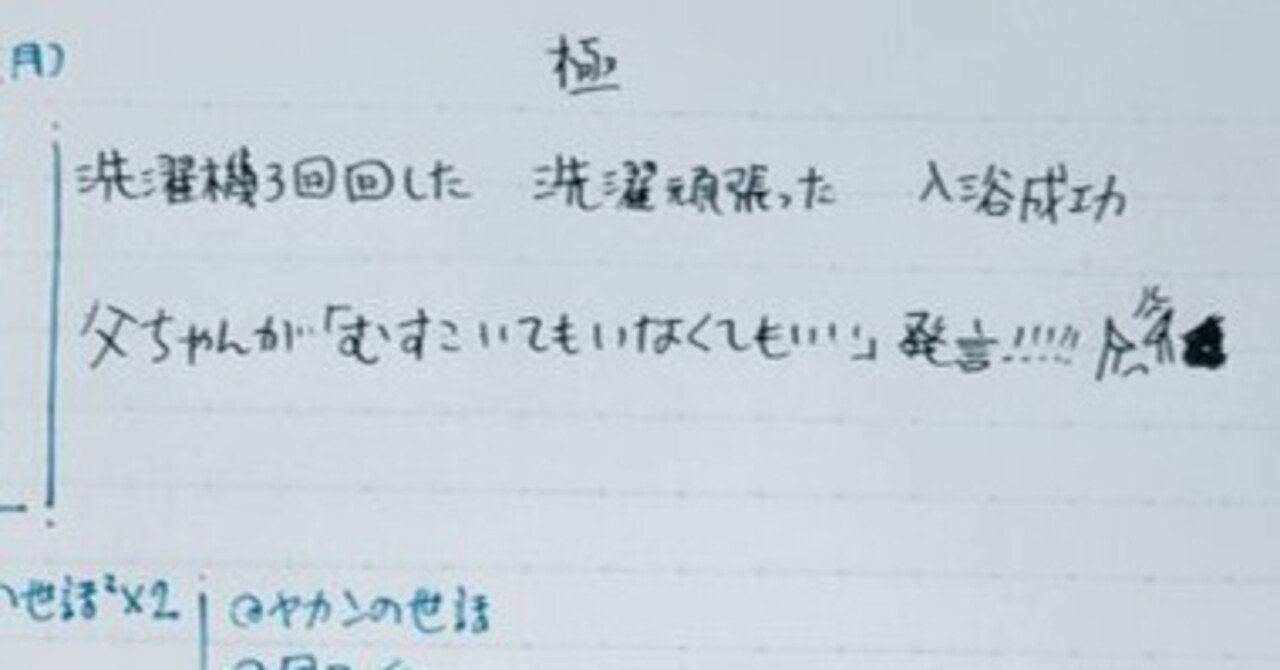 月)
極
洗濯機3回回した 洗濯頑張った 入浴成功
父ちゃんが「むすこいてもいなくてもいい」発言!!!!!
の世話²×2
ヤカンの世話